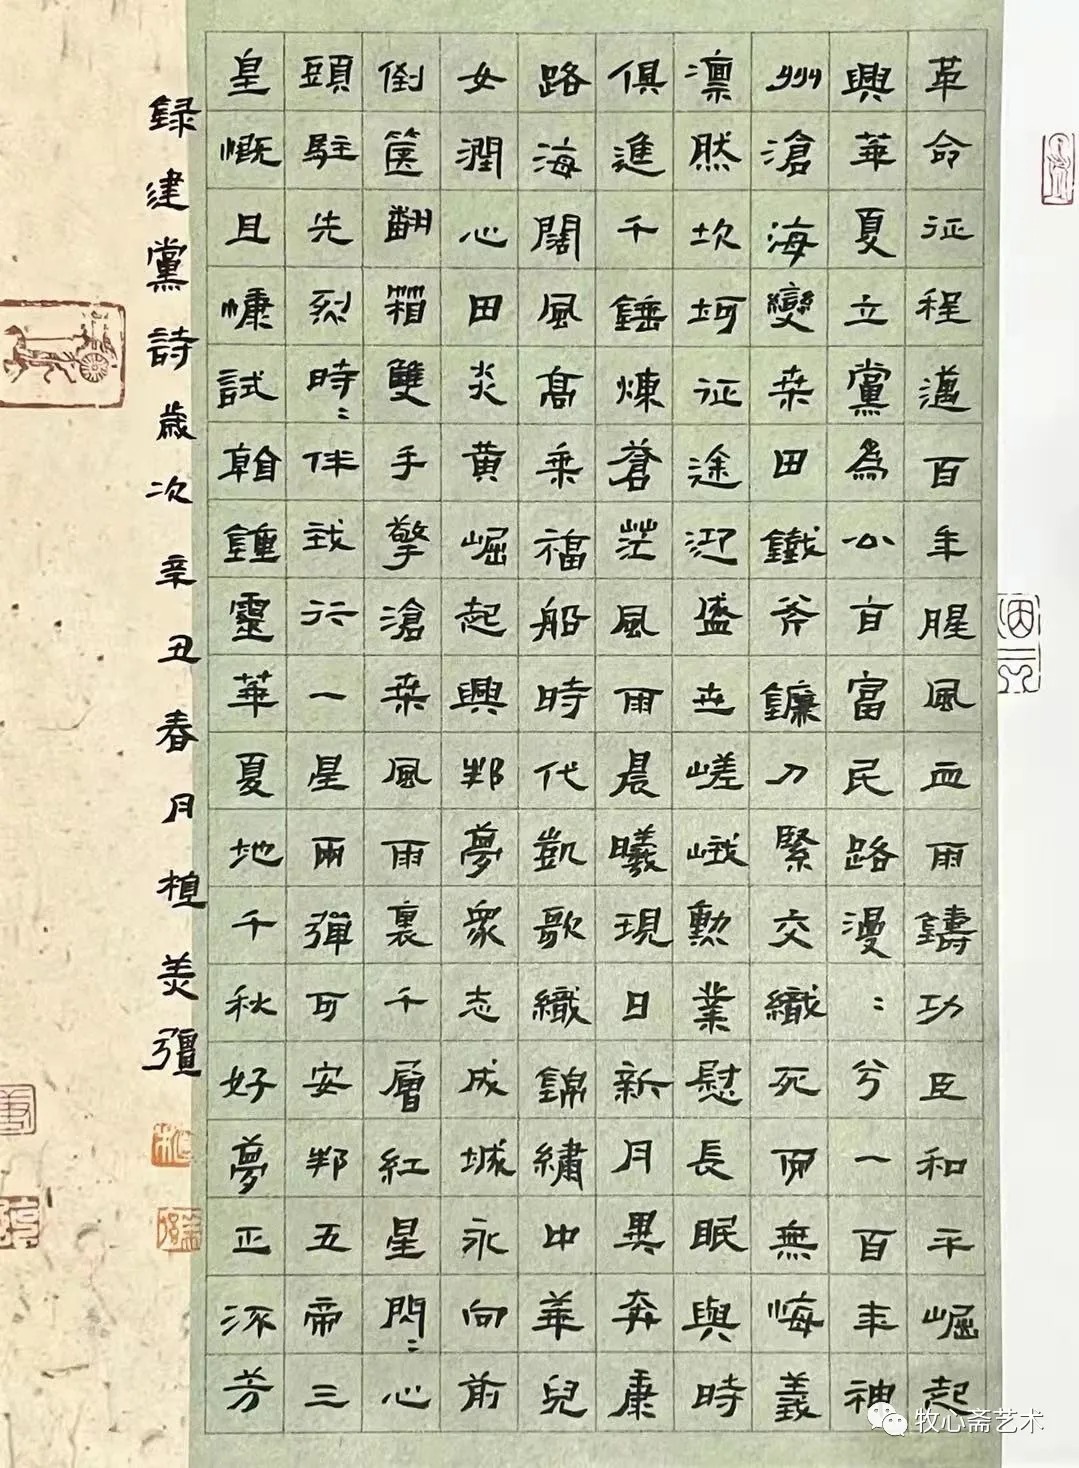 革命征程邁百年腥風血雨鑄功臣和平崛起
興華夏立黨為公富民路漫〻兮一百年神
州滄海變桑田鐵斧鐮刀緊交織死而無悔義
凛然坎坷征途迎盛世嵯峨勳業慰長眠與時
俱進千錘煉蒼茫風雨晨曦現日新月異奔康
路海闊風高乘福船時代凱歌織錦繡中華兒
女潤心田炎黄崛起興邦夢眾志成城永向前
倒篋翻箱雙手擎滄桑風雨裏千層紅星閃〻心
頭駐先烈時〻伴我行一星兩彈可安邦五帝三
皇慨且慷試翰鍾靈華夏地千秋好夢正添芳
録建黨詩歲次辛丑春月植美彊
牧心斋艺术